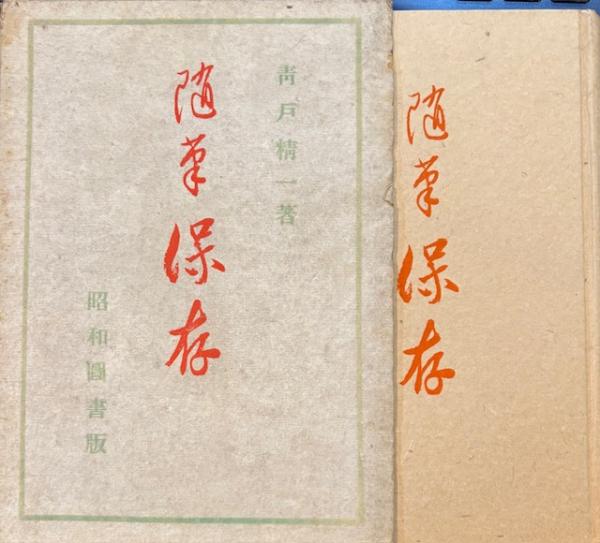 靑戶精一著
随筆保存
昭和圖書版
随筆保存